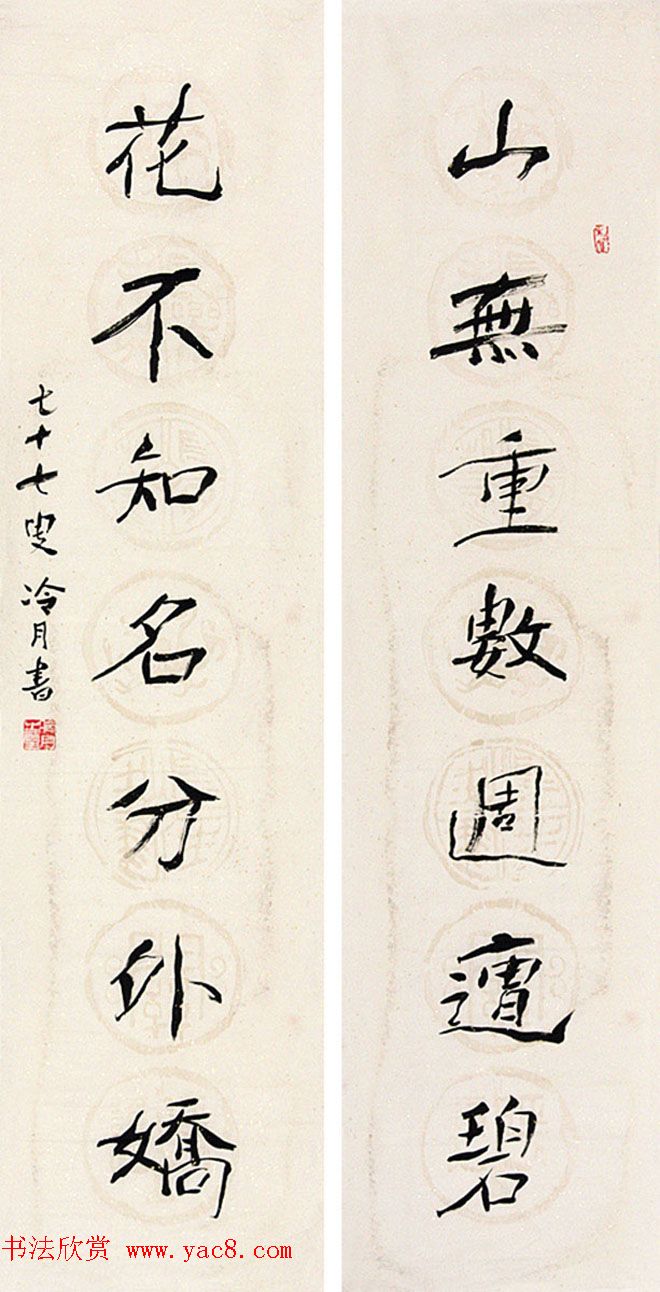 山無重數週遭碧
花不知名分外嬌
七十七叟冷月書
书法欣赏 www.yac8.com